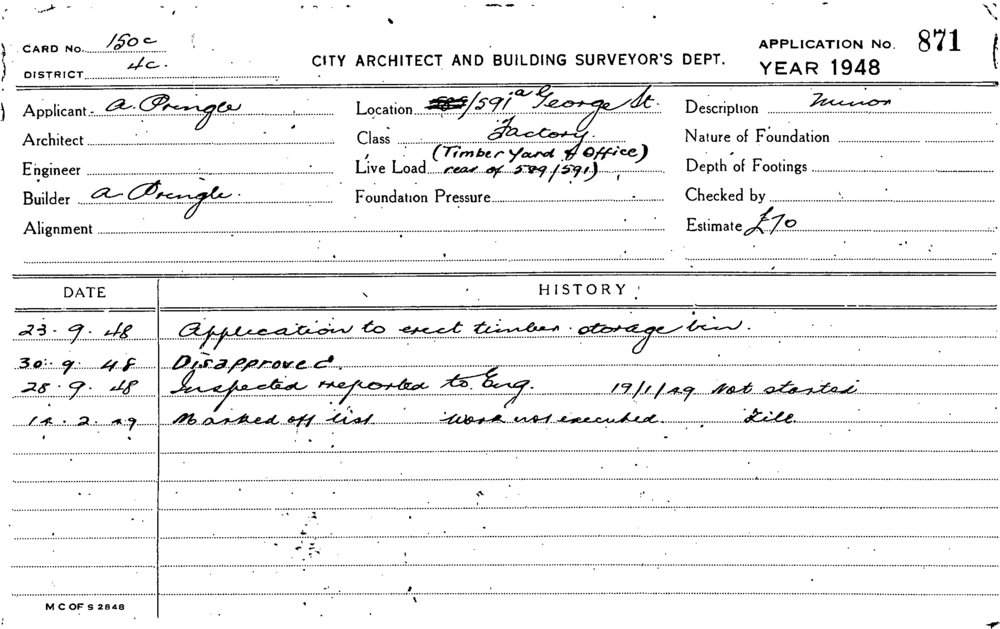 CARD No. 150c
DISTRICT 4c.
CITY ARCHITECT AND BUILDING SURVEYOR'S DEPT.
APPLICATION No. 871
YEAR 1948
Applicant A. Pringle
Architect
Engineer
Builder A. Pringle.
Alignment
Location /591a George St.
Class Factory.
(Timber Yard & Office)
Live Load rear of 589/591)
Foundation Pressure
Description Minor
Nature of Foundation
Depth of Footings
Checked by
Estimate £70
DATE HISTORY
23. 9. 48 Application to erect timber storage bin.
30. 9. 48 Disapproved.
28. 9. 48 Inspected & reported to Eng. 19/1/49 Not started
2. 49 Marked off list Work not executed.
M C OF S 2848